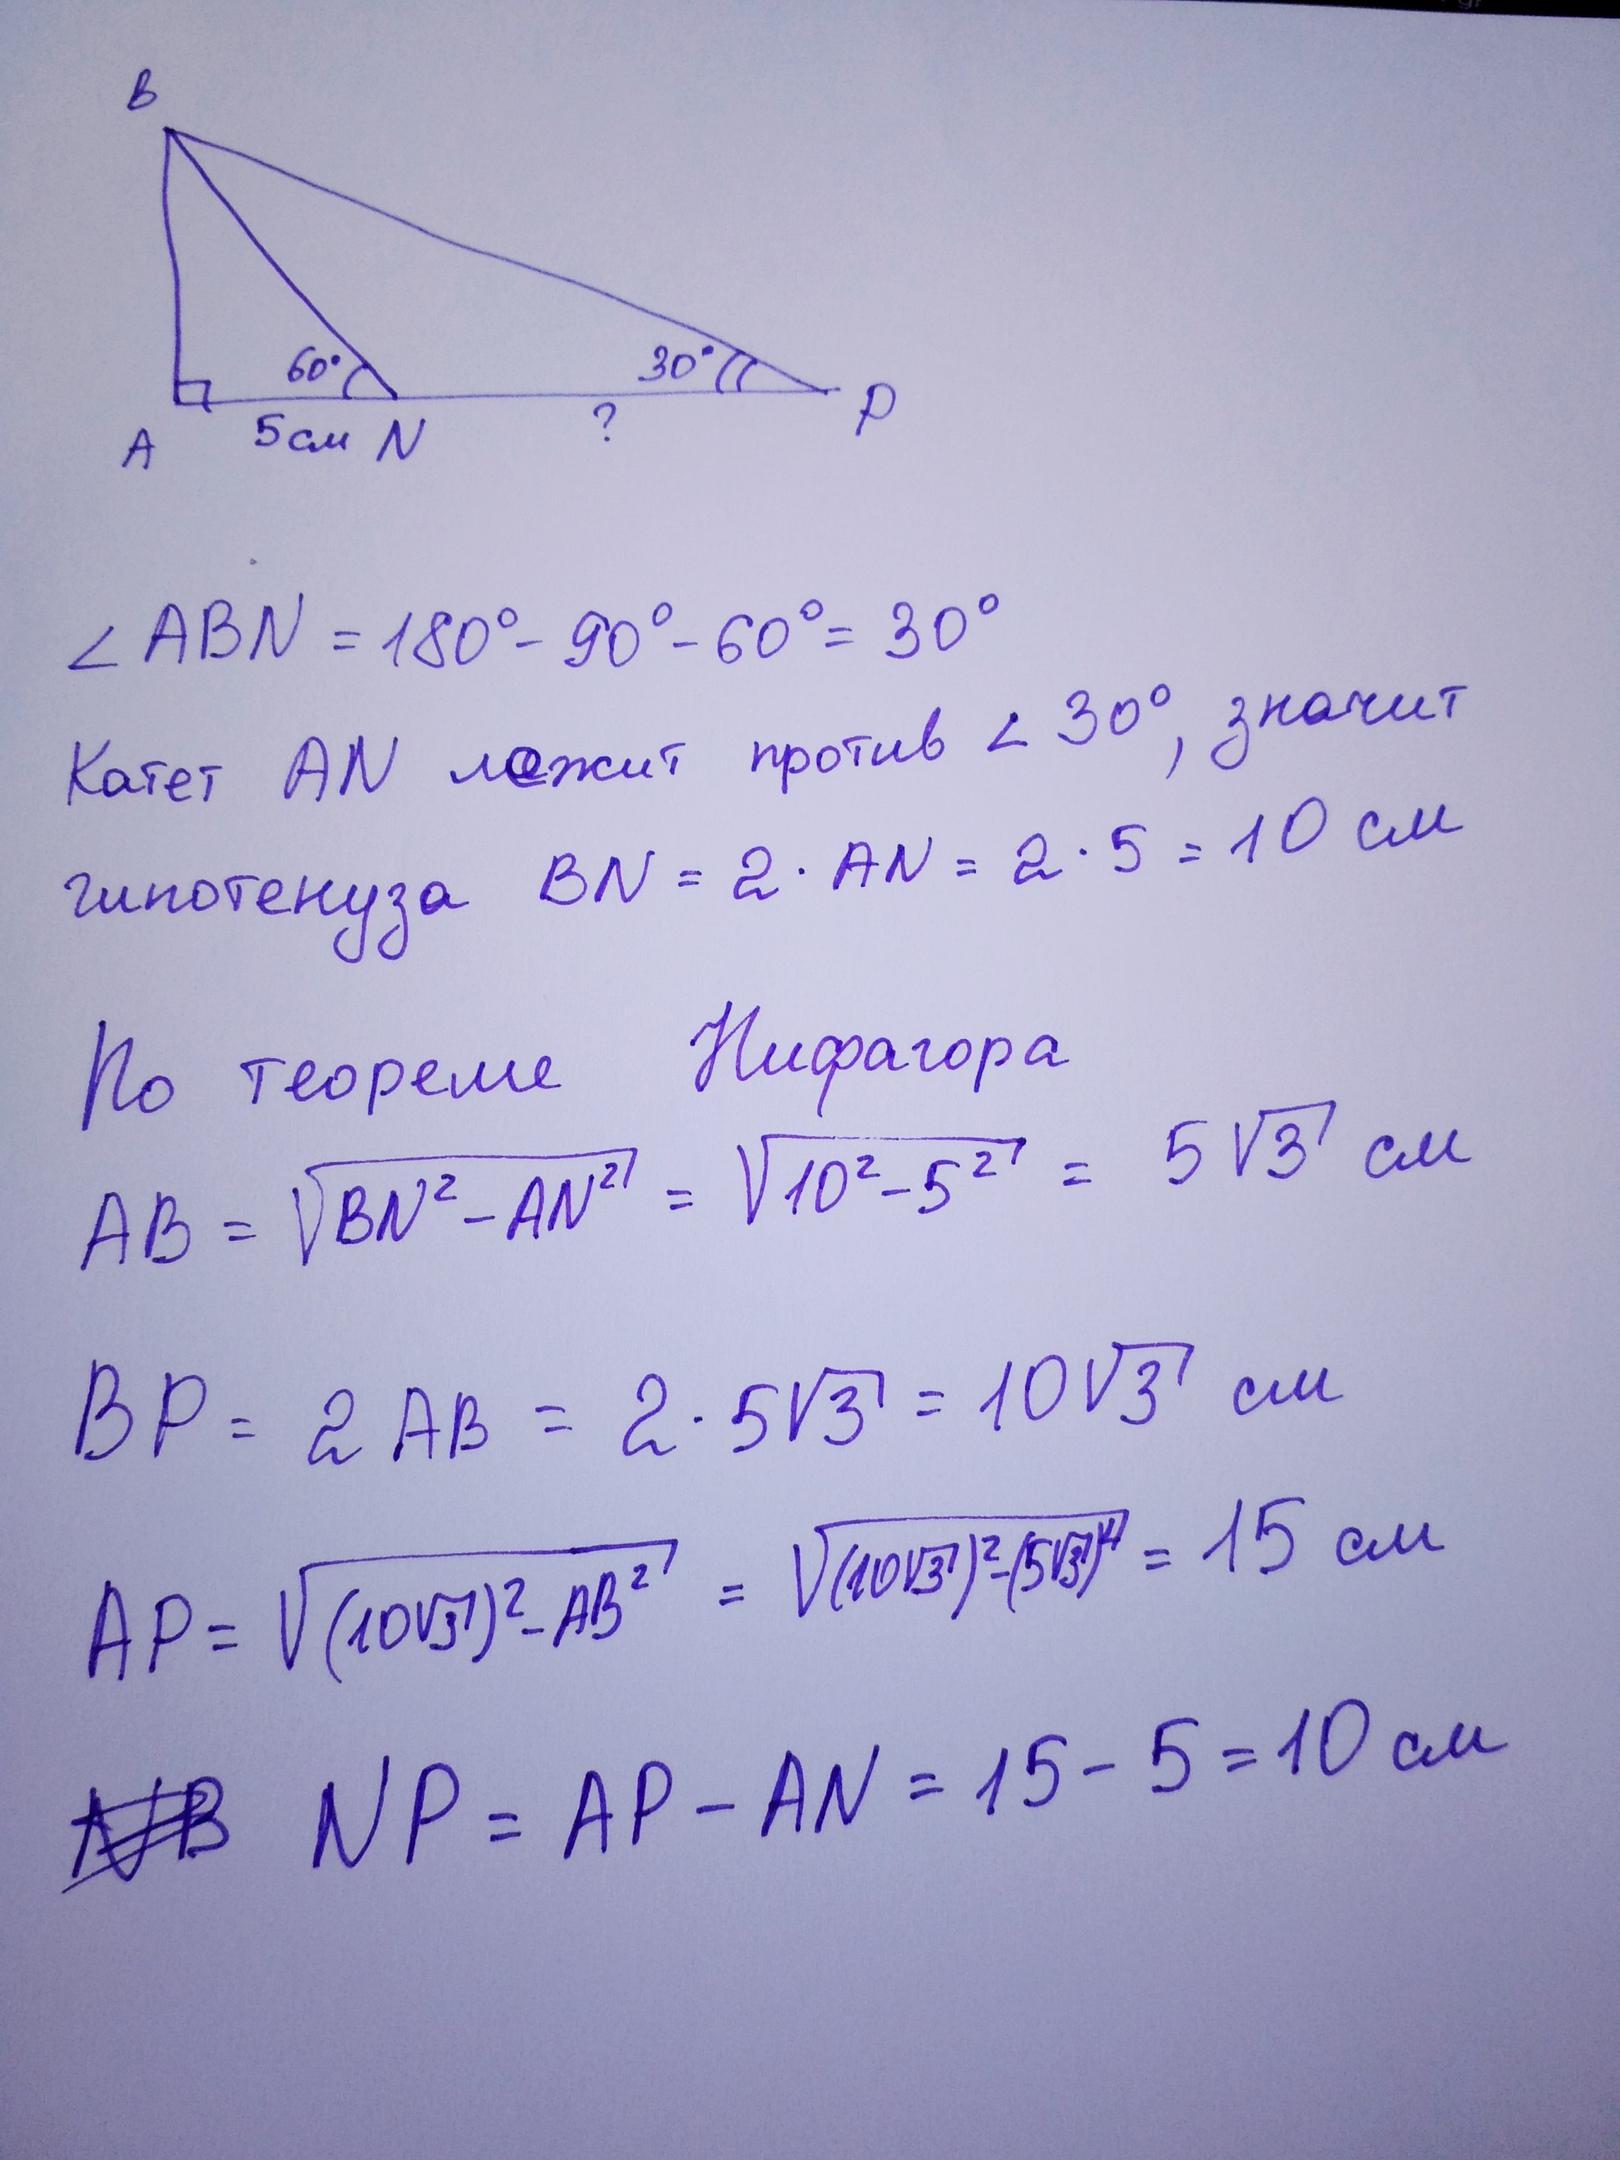 B
60°
30°
A
5см
N
?
P
∠ABN = 180° - 90° - 60° = 30°
Катет AN лежит против ∠30°, значит
гипотенуза BN = 2 · AN = 2 · 5 = 10 см
По теореме Пифагора
AB = √(BN² - AN²) = √(10² - 5²) = 5√3 см
BP = 2AB = 2 · 5√3 = 10√3 см
AP = √((10√3)² - AB²) = √((10√3)² - (5√3)²) = 15 см
NP = AP - AN = 15 - 5 = 10 см